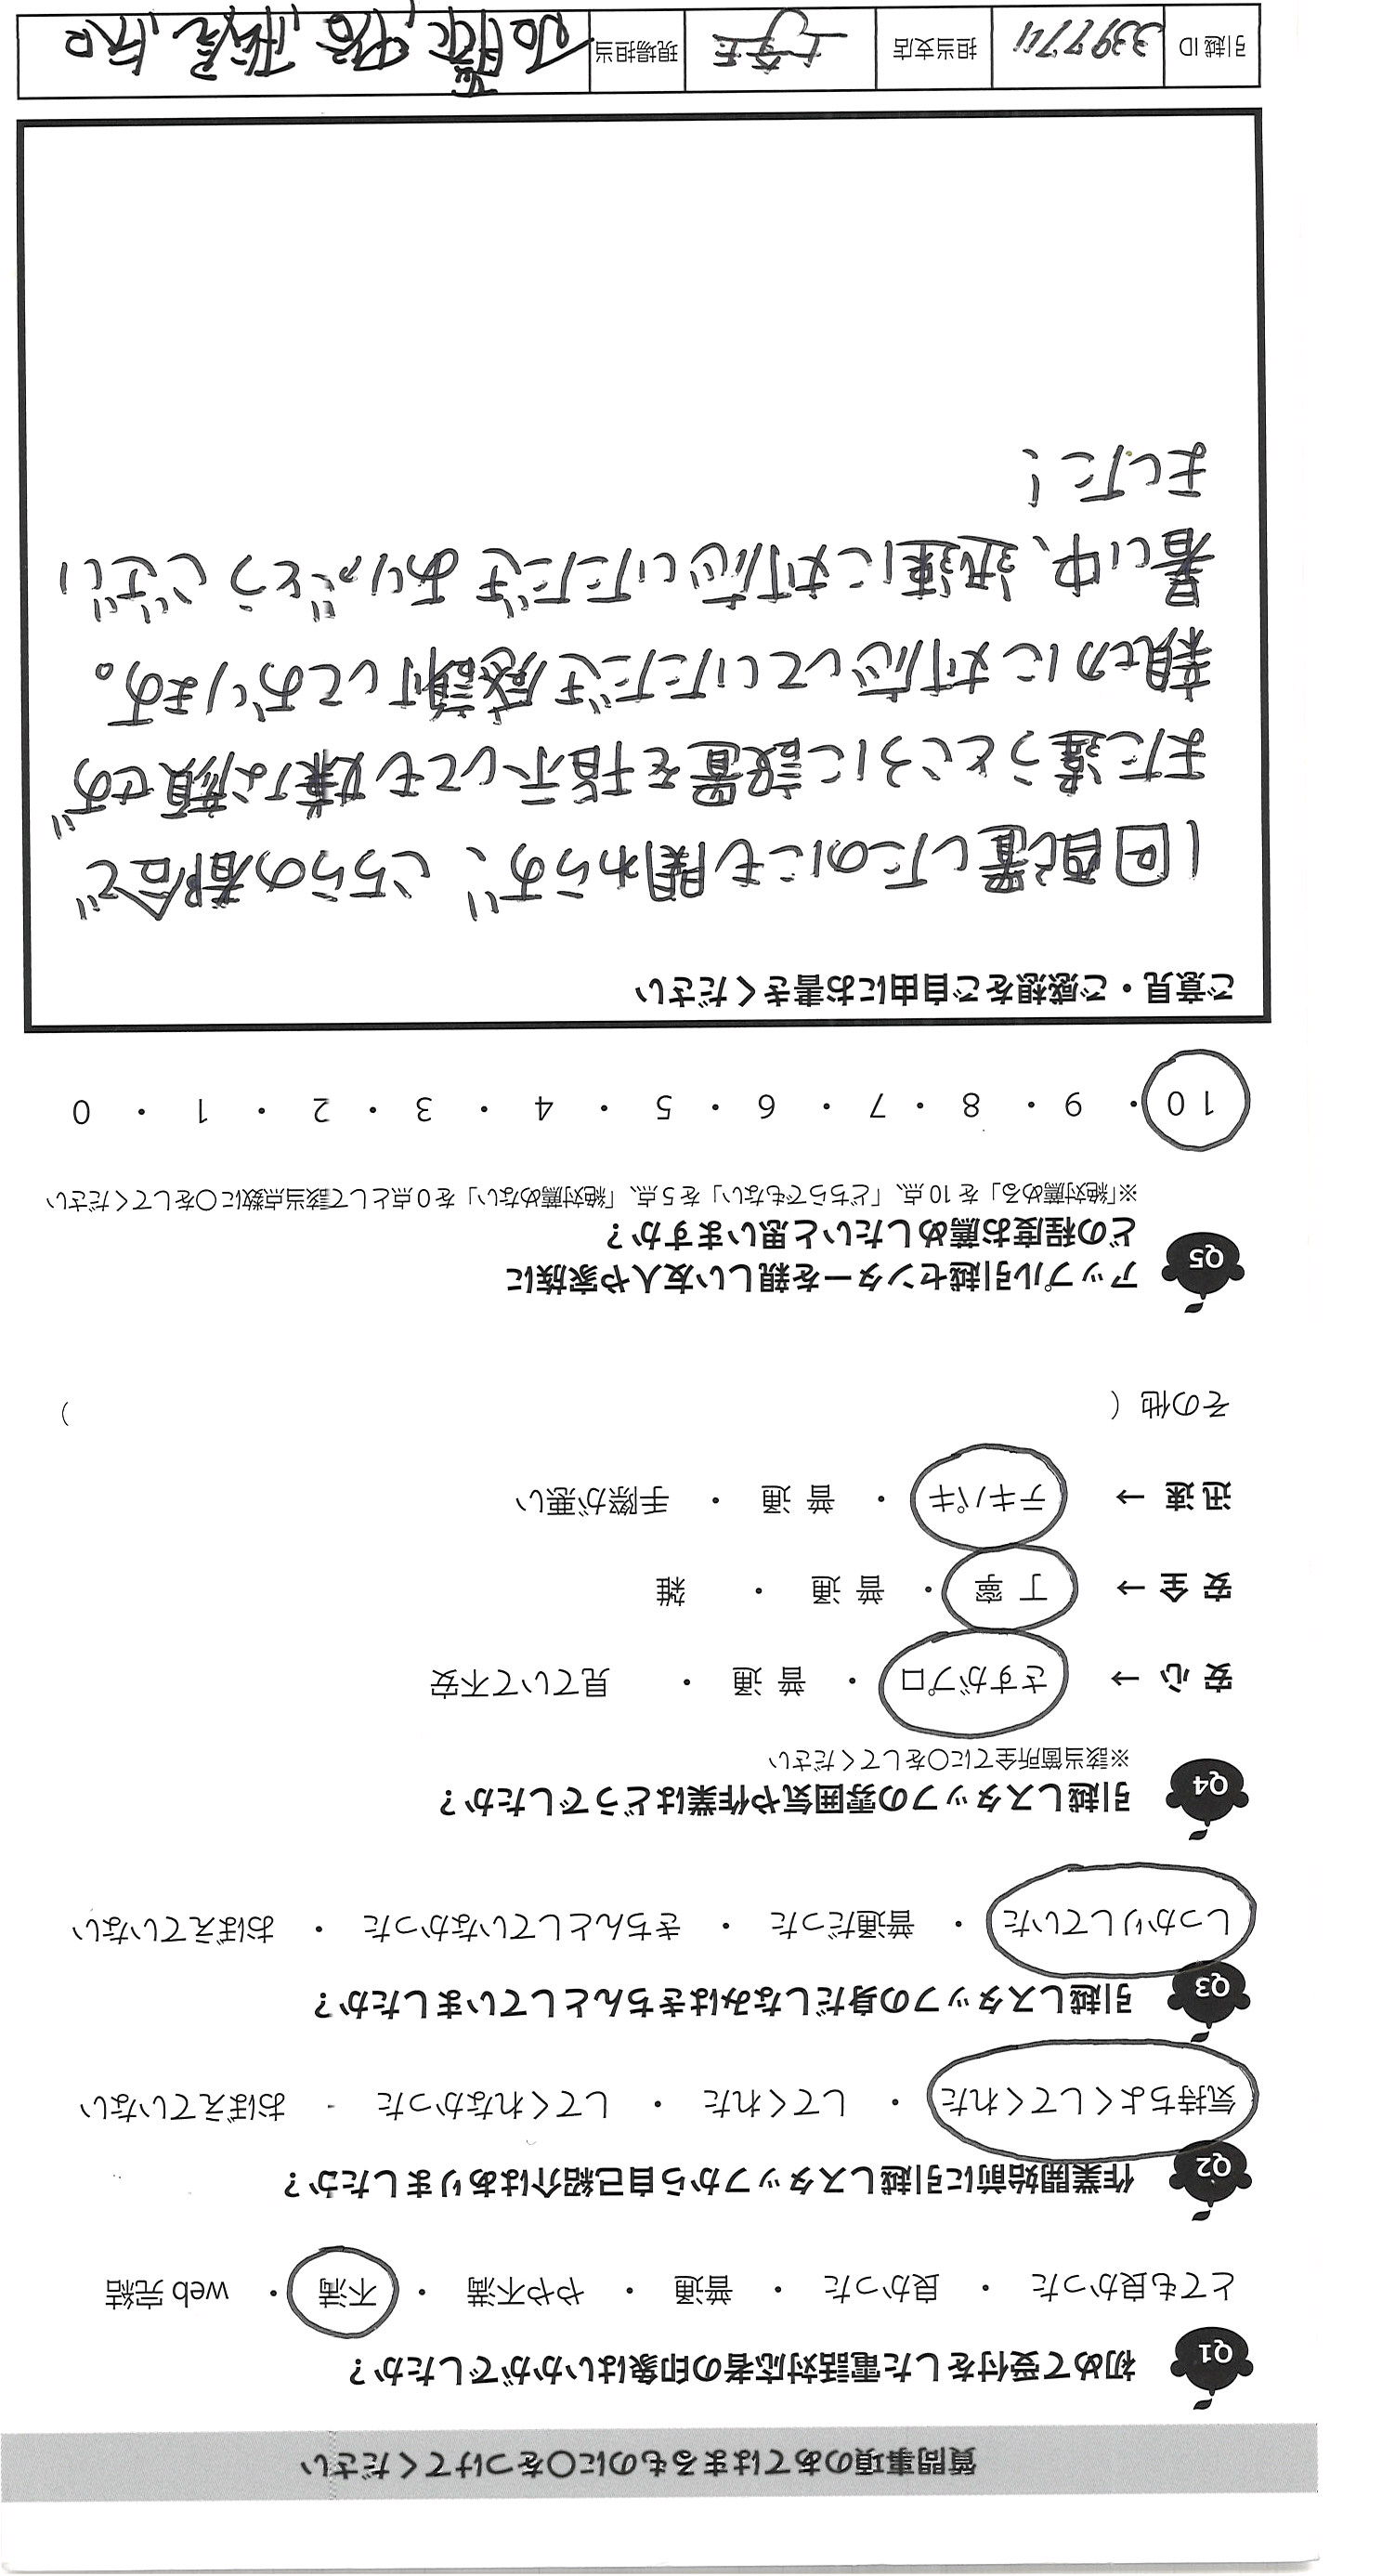 質問事項のあてはまるものに○をつけてください
Q1 初めて受付をした電話対応者の印象はいかがでしたか？
とても良かった ・ 良かった ・ 普通 ・ やや不満 ・ 不満 ・ web 完結
Q2 作業開始前に引越しスタッフから自己紹介はありましたか？
気持ちよくしてくれた ・ してくれた ・ してくれなかった ・ おぼえていない
Q3 引越しスタッフの身だしなみはきちんとしていましたか？
しっかりしていた ・ 普通だった ・ きちんとしていなかった ・ おぼえていない
Q4 引越しスタッフの雰囲気や作業はどうでしたか？
※該当箇所全てに○をしてください
安 心 → さすがプロ ・ 普 通 ・ 見ていて不安
安 全 → 丁 寧 ・ 普 通 ・ 雑
迅 速 → テキパキ ・ 普 通 ・ 手際が悪い
その他（ ）
Q5 アップル引越センターを親しい友人や家族に
どの程度お薦めしたいと思いますか？
※「絶対薦める」を 10 点、「どちらでもない」を 5 点、「絶対薦めない」を 0 点として該当点数に○をしてください
10 ・ 9 ・ 8 ・ 7 ・ 6 ・ 5 ・ 4 ・ 3 ・ 2 ・ 1 ・ 0
ご意見・ご感想をご自由にお書きください
1回配置したのにも関わらず、こちらの都合で
また違うところに設置を指示しても嫌な顔せず
親切に対応していただき感謝しております。
暑い中、迅速に対応いただきありがとうござい
ました！
引越 ID 339774 担当支店 現場担当